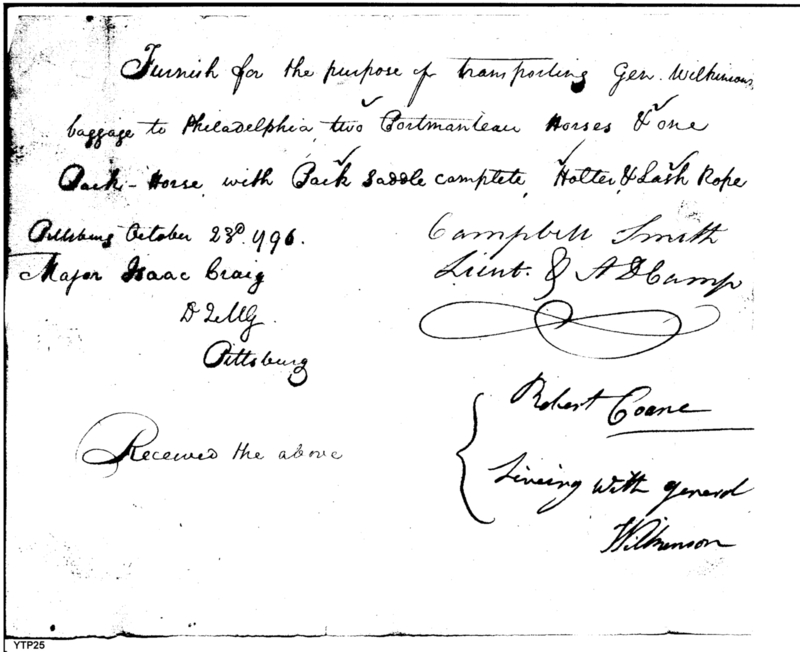 Furnish for the purpose of transporting Gen. Wilkinsons
baggage to Philadelphia, two Portmanteau Horses & one
Pack-Horse, with Pack Saddle complete, Halter, & Lash Rope
Pittsburg October 23d. 1796.
Campbell Smith
Lieut. & A D Camp
Major Isaac Craig
D Q M G.
Pittsburg
Received the above
Robert Coane
Liveing with general
Wilkinson
YTP25